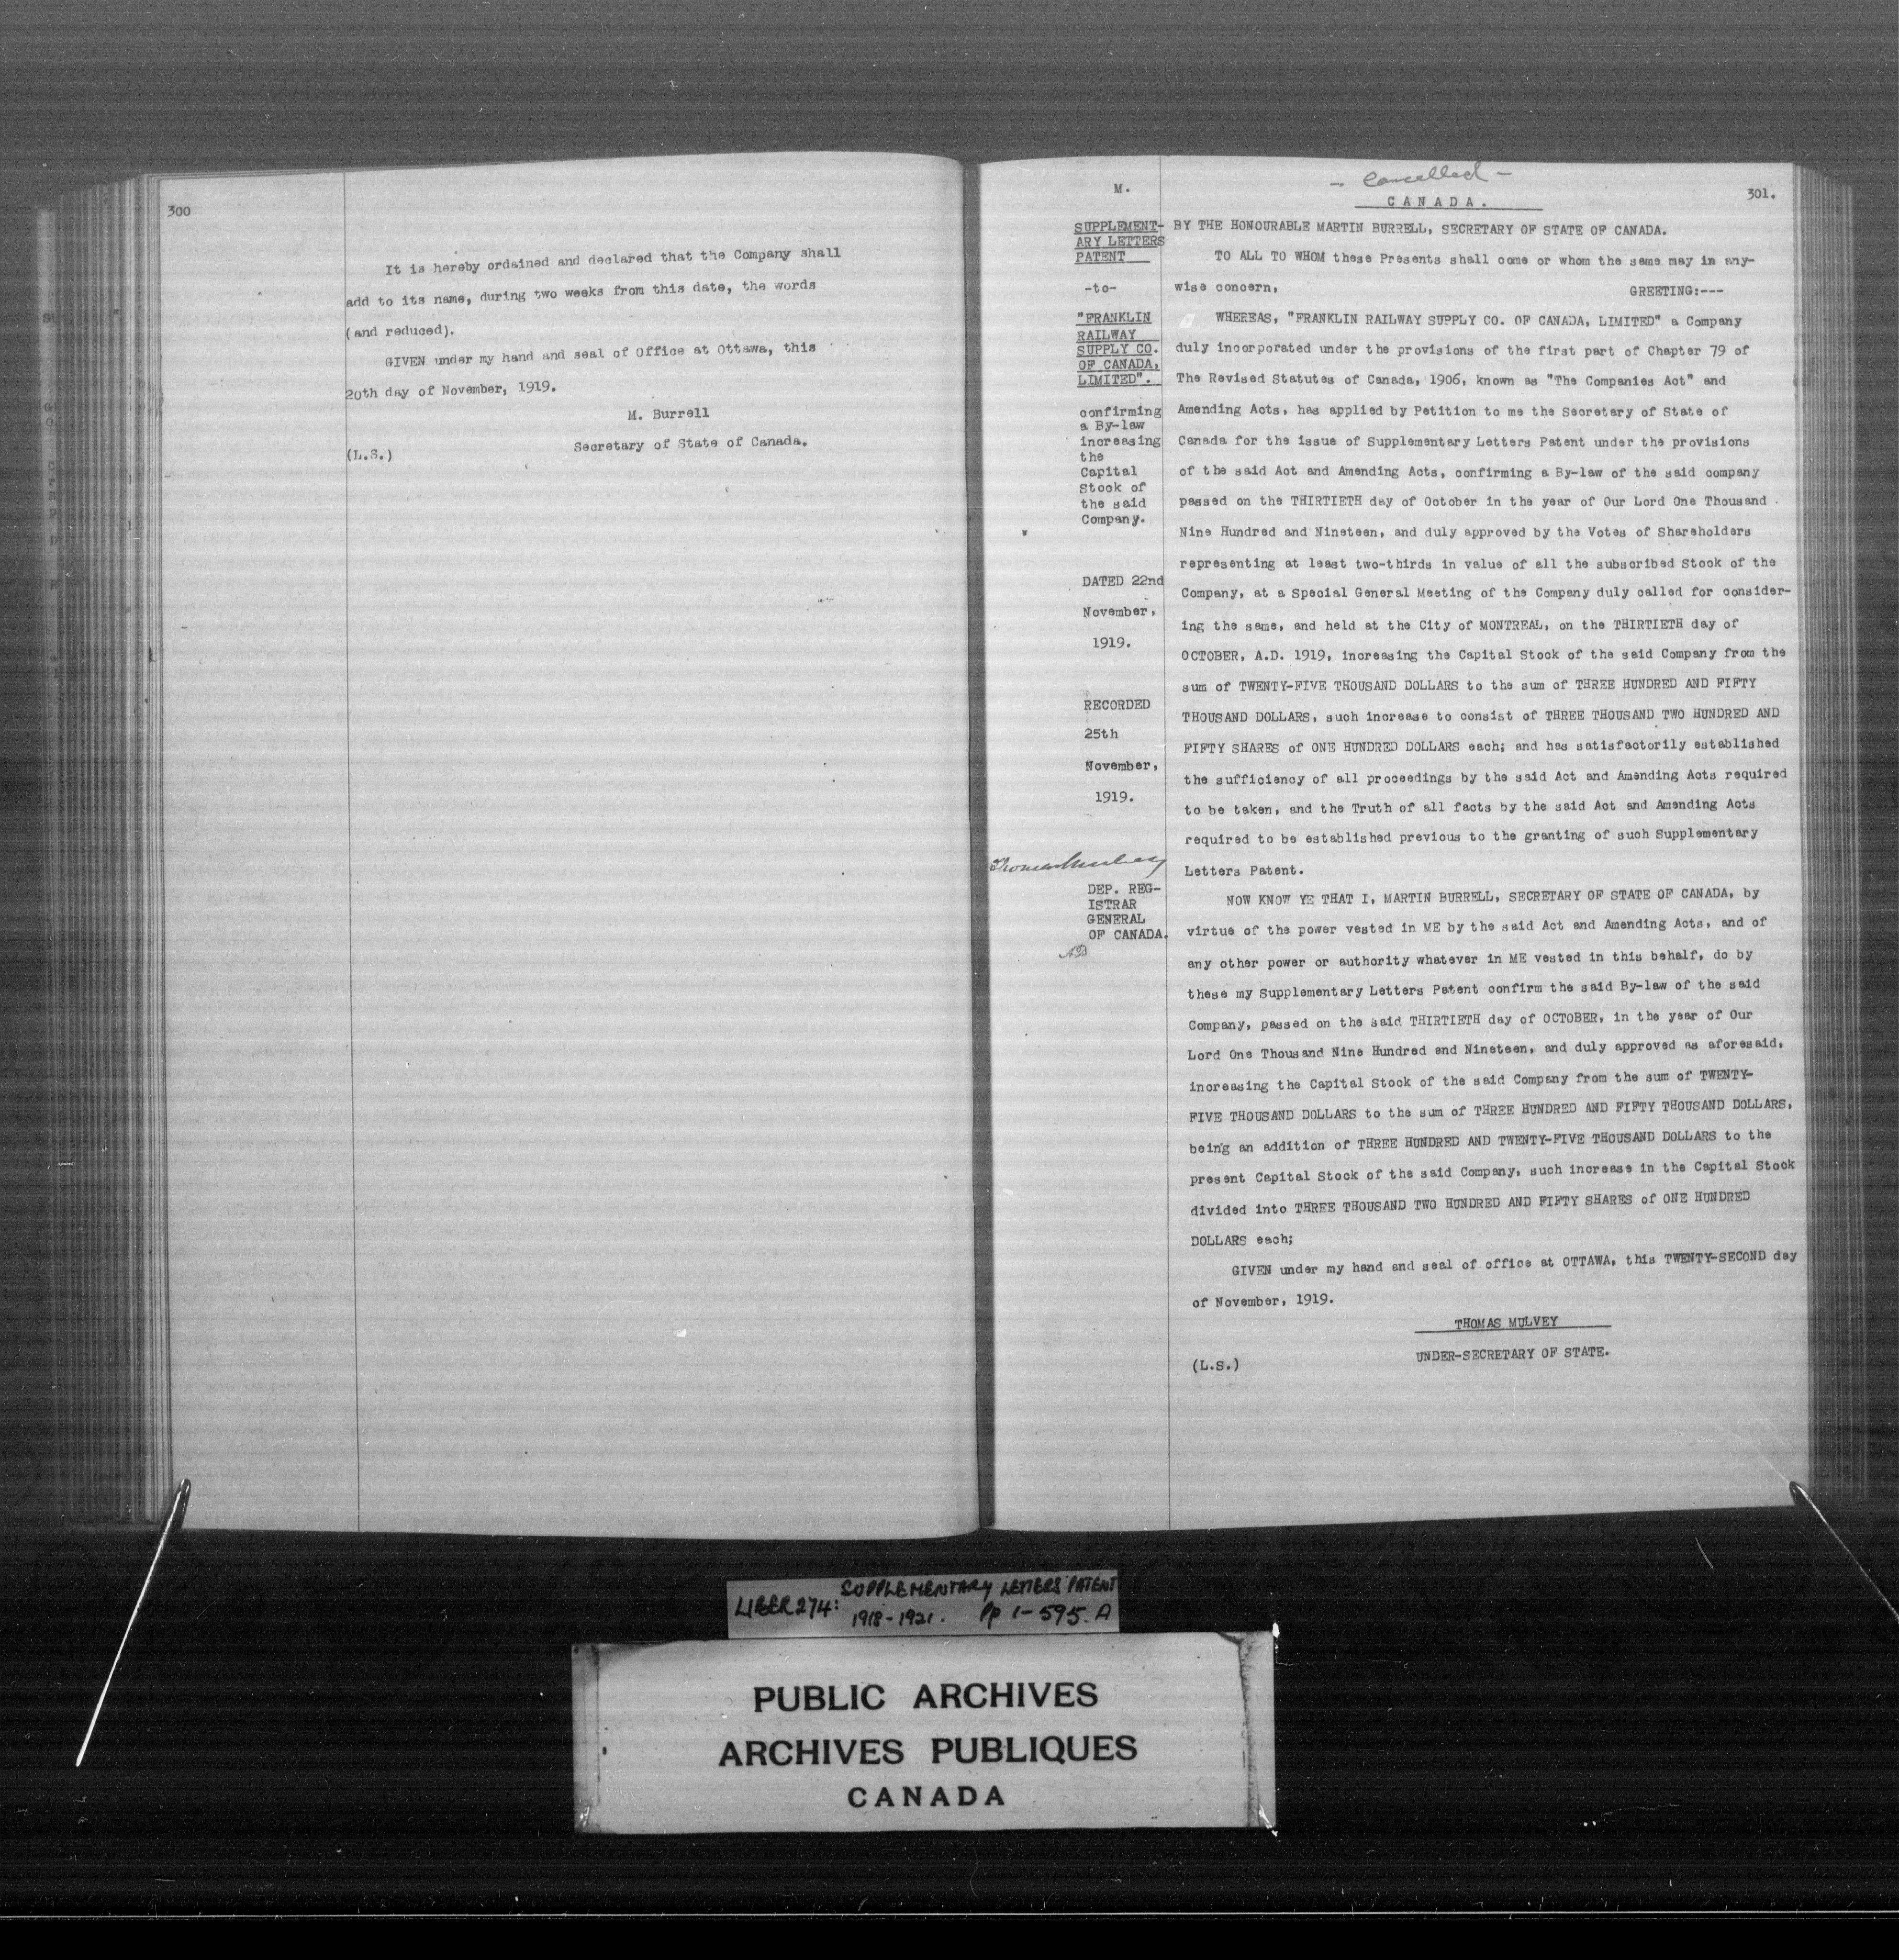 300
It is hereby ordained and declared that the Company shall
add to its name, during two weeks from this date, the words
(and reduced).
GIVEN under my hand and seal of Office at Ottawa, this
20th day of November, 1919.
M. Burrell
Secretary of State of Canada.
(L.S.)
M.
SUPPLEMENT-
ARY LETTERS
PATENT
-to-
"FRANKLIN
RAILWAY
SUPPLY CO.
OF CANADA,
LIMITED".
confirming
a By-law
increasing
the
Capital
Stock of
the said
Company.
DATED 22nd
November,
1919.
RECORDED
25th
November,
1919.
Thomas Mulvey
DEP. REG-
ISTRAR
GENERAL
OF CANADA.
- Cancelled -
CANADA.
301.
BY THE HONOURABLE MARTIN BURRELL, SECRETARY OF STATE OF CANADA.
TO ALL TO WHOM these Presents shall come or whom the same may in any-
wise concern, GREETING:---
WHEREAS, "FRANKLIN RAILWAY SUPPLY CO. OF CANADA, LIMITED" a Company
duly incorporated under the provisions of the first part of Chapter 79 of
The Revised Statutes of Canada, 1906, known as "The Companies Act" and
Amending Acts, has applied by Petition to me the Secretary of State of
Canada for the issue of Supplementary Letters Patent under the provisions
of the said Act and Amending Acts, confirming a By-law of the said company
passed on the THIRTIETH day of October in the year of Our Lord One Thousand
Nine Hundred and Nineteen, and duly approved by the Votes of Shareholders
representing at least two-thirds in value of all the subscribed Stock of the
Company, at a Special General Meeting of the Company duly called for consider-
ing the same, and held at the City of MONTREAL, on the THIRTIETH day of
OCTOBER, A.D. 1919, increasing the Capital Stock of the said Company from the
sum of TWENTY-FIVE THOUSAND DOLLARS to the sum of THREE HUNDRED AND FIFTY
THOUSAND DOLLARS, such increase to consist of THREE THOUSAND TWO HUNDRED AND
FIFTY SHARES of ONE HUNDRED DOLLARS each; and has satisfactorily established
the sufficiency of all proceedings by the said Act and Amending Acts required
to be taken, and the Truth of all facts by the said Act and Amending Acts
required to be established previous to the granting of such Supplementary
Letters Patent.
NOW KNOW YE THAT I, MARTIN BURRELL, SECRETARY OF STATE OF CANADA, by
virtue of the power vested in ME by the said Act and Amending Acts, and of
any other power or authority whatever in ME vested in this behalf, do by
these my Supplementary Letters Patent confirm the said By-law of the said
Company, passed on the said THIRTIETH day of OCTOBER, in the year of Our
Lord One Thousand Nine Hundred and Nineteen, and duly approved as aforesaid,
increasing the Capital Stock of the said Company from the sum of TWENTY-
FIVE THOUSAND DOLLARS to the sum of THREE HUNDRED AND FIFTY THOUSAND DOLLARS,
being an addition of THREE HUNDRED AND TWENTY-FIVE THOUSAND DOLLARS to the
present Capital Stock of the said Company, such increase in the Capital Stock
divided into THREE THOUSAND TWO HUNDRED AND FIFTY SHARES of ONE HUNDRED
DOLLARS each;
GIVEN under my hand and seal of office at OTTAWA, this TWENTY-SECOND day
of November, 1919.
THOMAS MULVEY
UNDER-SECRETARY OF STATE.
(L.S.)
LIBER 274: SUPPLEMENTARY LETTERS PATENT
1918-1921. Pp 1-595. A
PUBLIC ARCHIVES
ARCHIVES PUBLIQUES
CANADA